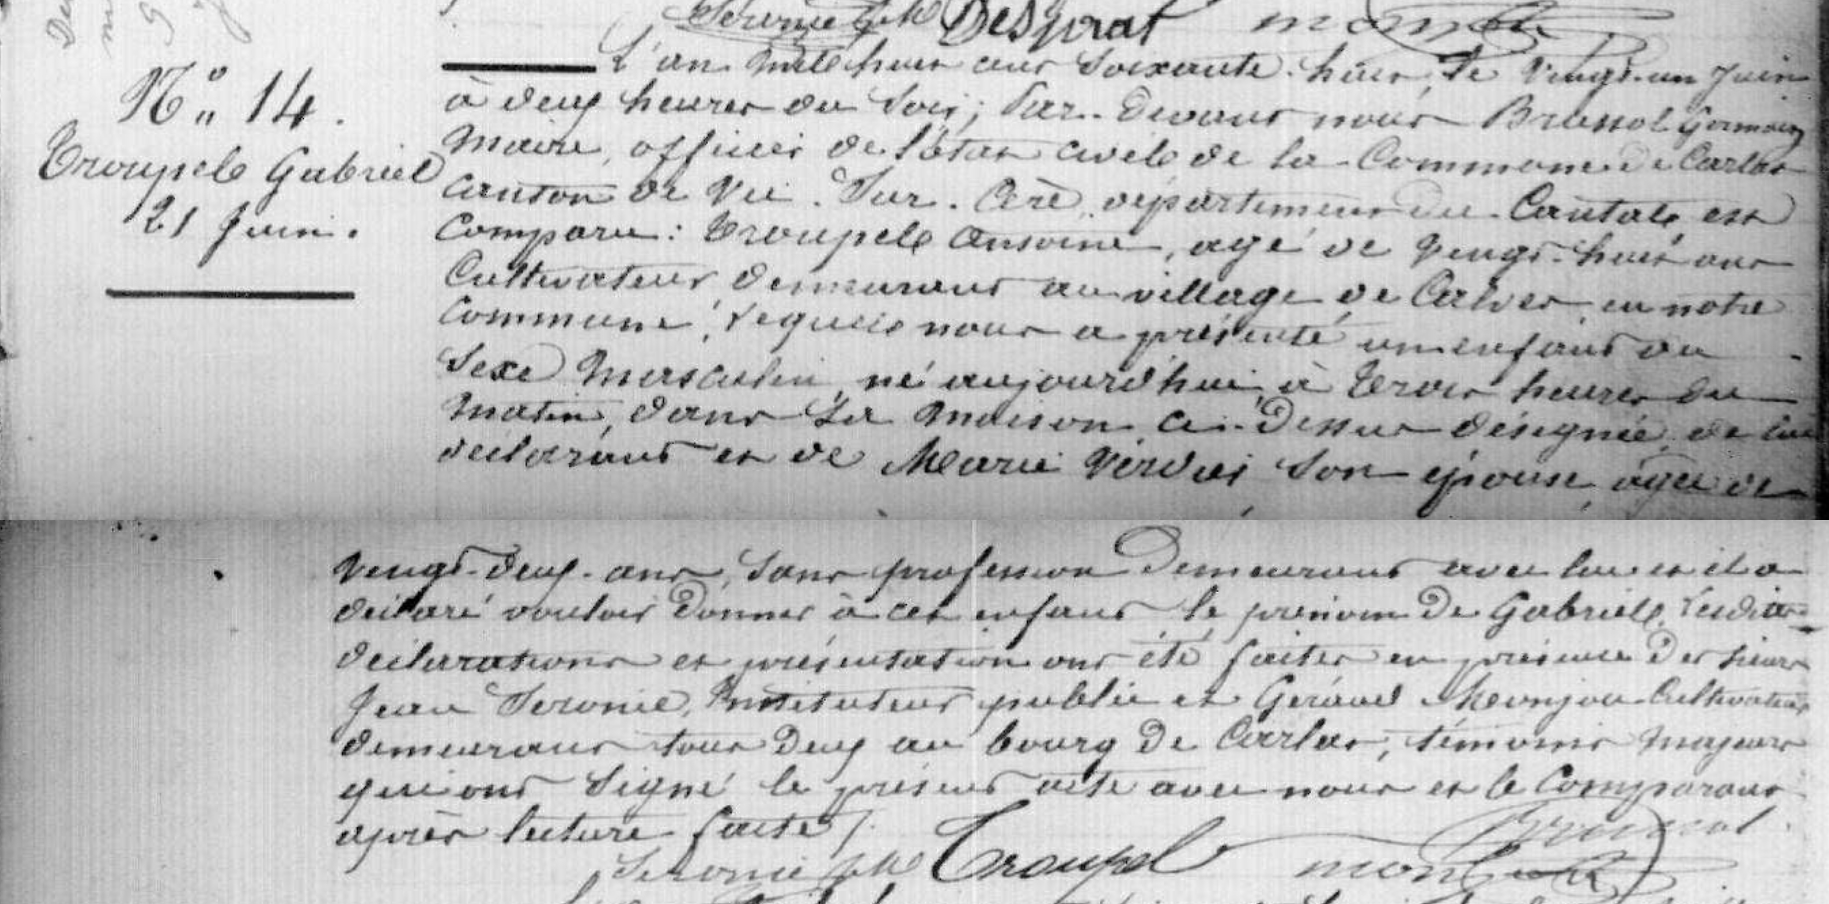 Desprat
N° 14.
Troupel Gabriel
21 Juin.
L'an mil huit cent soixante-huit, le vingt-un Juin
à deux heures du soir; Par-devant nous Brussol Germain
Maire, officier de l'état civil de la Commune de Carlat
canton de Vic-Sur-Cère, département du Cantal, est
comparu: Troupel Antoine, agé de vingt-huit ans
Cultivateur demeurant au village de Calves, en notre
Commune, lequel nous a présenté un enfant du
Sexe Masculin, né aujourd'hui, à trois heures du
Matin, dans sa maison ci-dessus désignée, de lui
déclarant et de Marie Verdier son épouse, agée de
vingt-deux-ans, sans profession Demeurant avec lui et il a
déclaré vouloir Donner à cet enfant le prénom De Gabriel, Lesdites
déclarations et présentation ont été faites en présence Des sieurs
Jean Seronie, Instituteur public et Géraud Monjou Cultivateur
demeurant tous Deux au bourg De Carlat, témoins majeurs
qui ont signé le présent acte avec nous et le Comparant
après lecture faite /.
Seronie Troupel